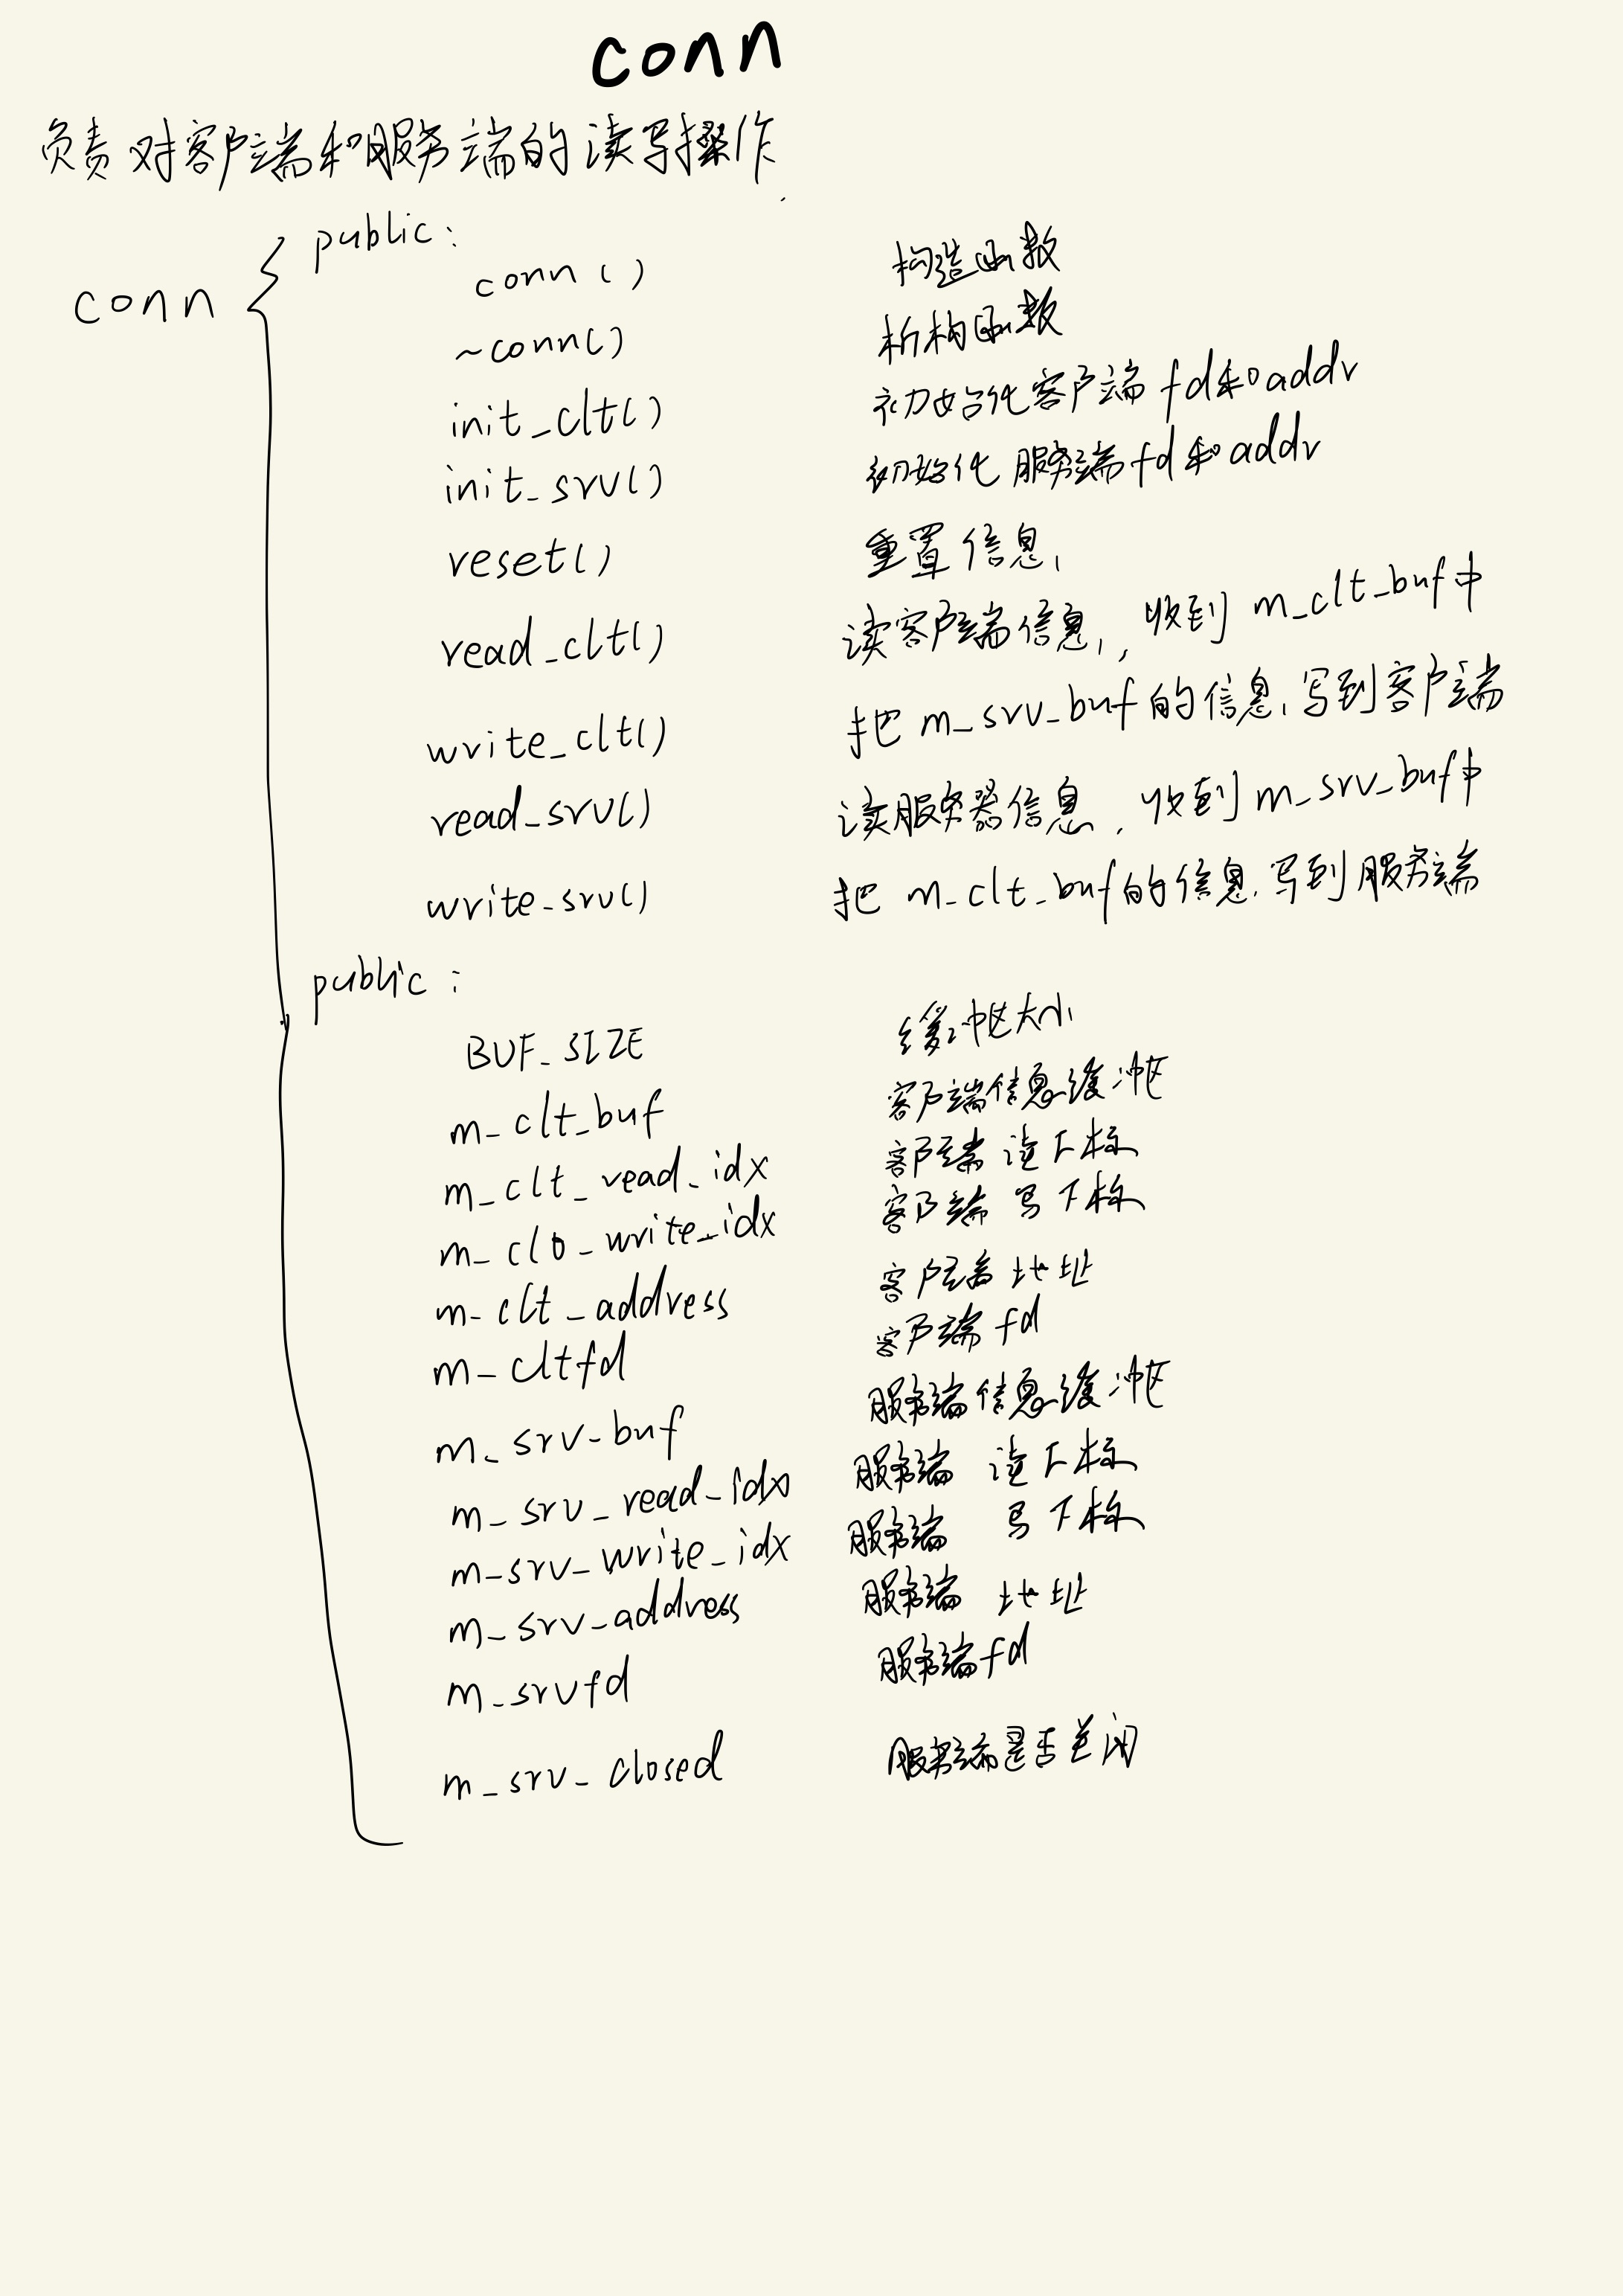 conn
负责对客户端和服务端的读写操作
public:
conn
conn() 构造函数
~conn() 析构函数
init_clt() 初始化客户端fd和addr
init_srv() 初始化服务端fd和addr
reset() 重置信息
read_clt() 读客户端信息, 收到m_clt_buf中
write_clt() 把m_srv_buf的信息写到客户端
read_srv() 读服务器信息, 收到m_srv_buf中
write_srv() 把m_clt_buf的信息写到服务端
public:
BUF_SIZE 缓冲区大小
m_clt_buf 客户端信息缓冲区
m_clt_read_idx 客户端 读下标
m_clt_write_idx 客户端 写下标
m_clt_address 客户端 地址
m_cltfd 客户端 fd
m_srv_buf 服务端信息缓冲区
m_srv_read_idx 服务端 读下标
m_srv_write_idx 服务端 写下标
m_srv_address 服务端 地址
m_srvfd 服务端fd
m_srv_closed 服务端是否关闭